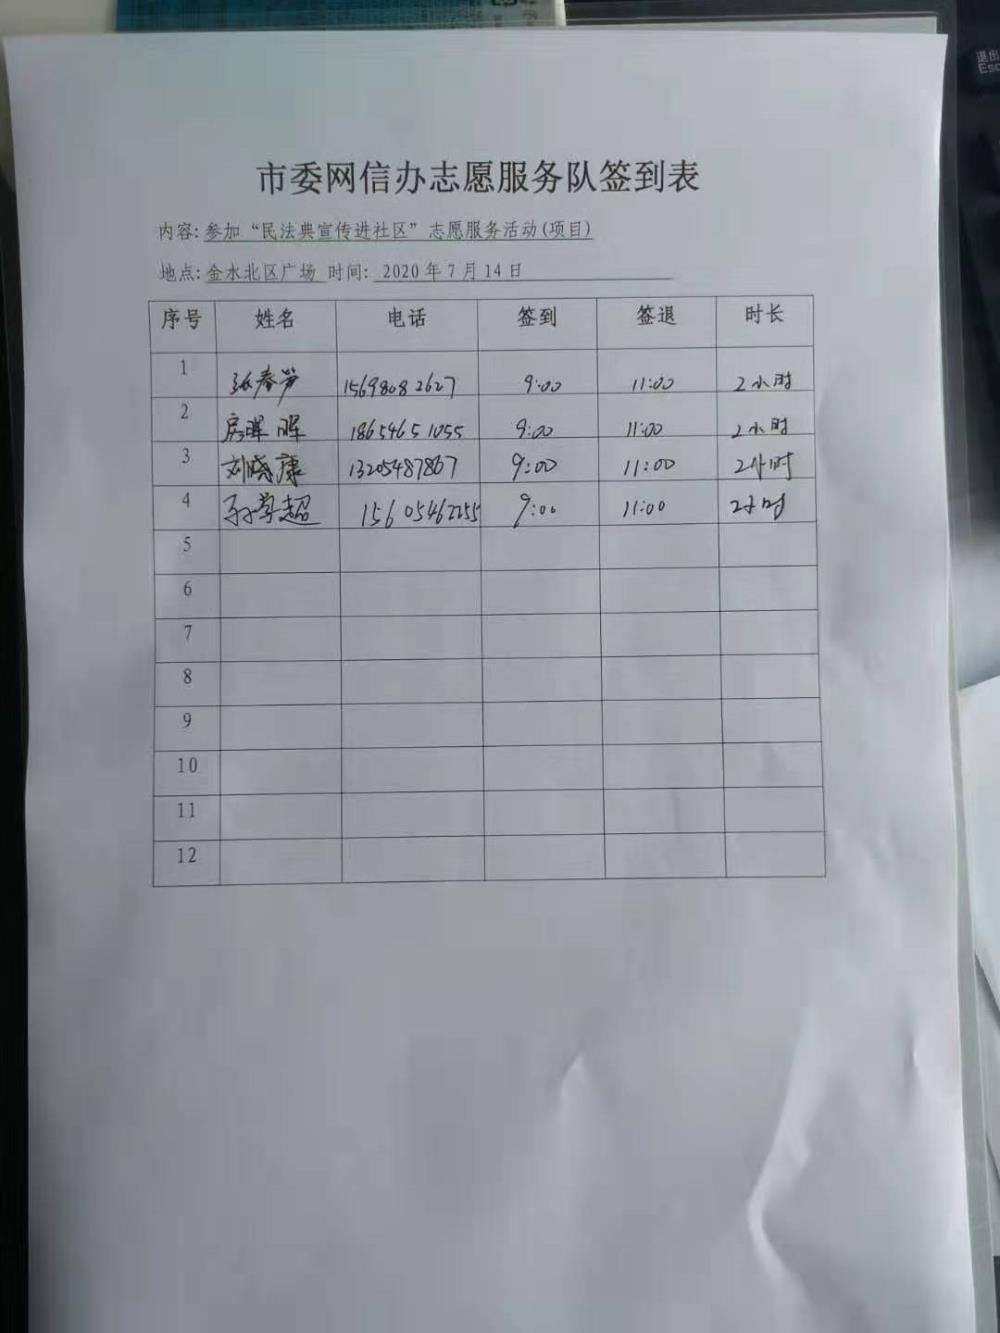 退出
Esc
市委网信办志愿服务队签到表
内容:参加“民法典宣传进社区”志愿服务活动(项目)
地点:金水北区广场 时间: 2020年7月14日
序号 姓名 电话 签到 签退 时长
1 张春笋 15698082627 9:00 11:00 2小时
2 房晖晖 18654651055 9:00 11:00 2小时
3 刘晓康 13205487867 9:00 11:00 2小时
4 孙学超 15605462255 9:00 11:00 2小时
5
6
7
8
9
10
11
12